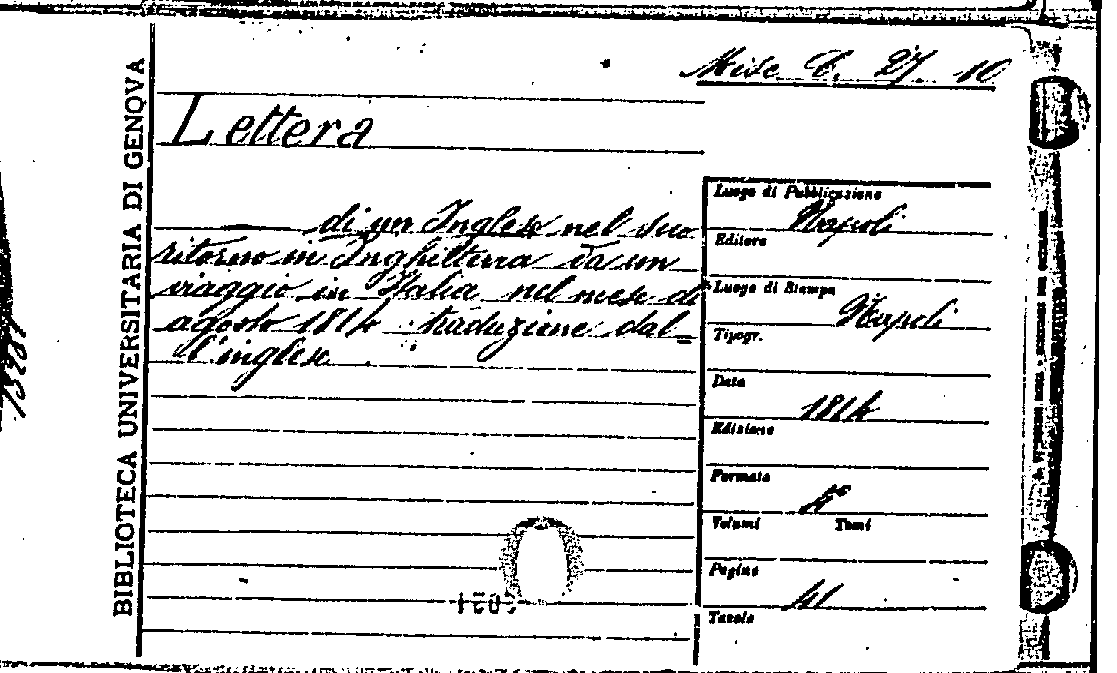 BIBLIOTECA UNIVERSITARIA DI GENOVA
Misc. C. 27. 10
Lettera
di un Inglese nel suo
ritorno in Inghilterra da un
viaggio in Italia nel mese di
agosto 1814 : traduzione dal
l'inglese
Luogo di Pubblicazione
Napoli
Editore
Luogo di Stampa
Napoli
Tipogr.
Data
1814
Edizione
Formato
4°
Volumi Tomi
Pagine
41
Tavole